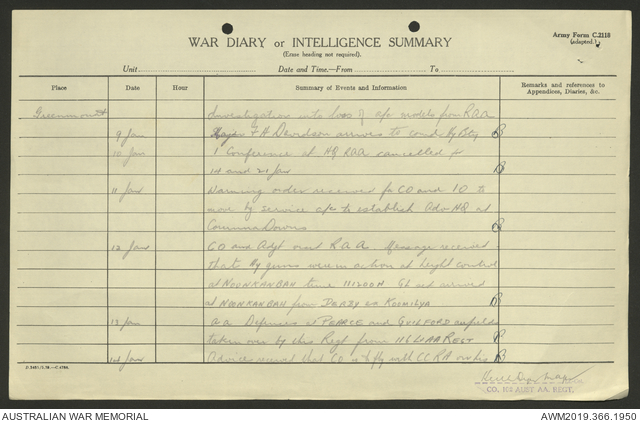 Army Form C.2118
(adapted.)
WAR DIARY or INTELLIGENCE SUMMARY
(Erase heading not required).
Unit Date and Time.—From To
Place Date Hour Summary of Events and Information Remarks and references to
Appendices, Diaries, &c.
Greenmount Investigation into loss of a/c models from RAA
9 Jan Major F H Davidson arrives to comd Hy Bty
10 Jan Conference at HQ RAA cancelled
14 and 21 Jan
11 Jan Warning order received for CO and IO to
move by service a/c to establish Adv HQ at
Corunna Downs
12 Jan CO and Adjt visit RAA. Message received
that Hy guns were in action at height control
at NOONKANBAH time 111200H and arrived
at NOONKANBAH from DERBY
13 Jan aa Defences of PEARCE and GUILFORD airfields
taken over by this Regt from 116 Lt AA REGT
14 Jan Advice received that CO is to fly with CCRA
Major
CO. 102 AUST AA. REGT.
AUSTRALIAN WAR MEMORIAL
AWM2019.366.1950